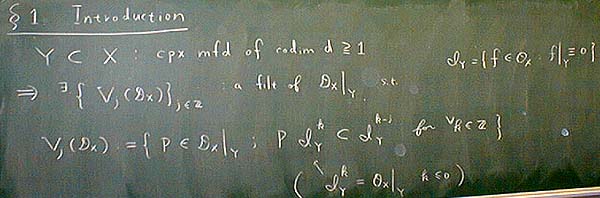 §1. Introduction
Y ⊂ X : cpx mfd of codim d ≧ 1
𝓘_Y = { f ∈ 𝒪_X ; f|_Y ≡ 0 }
⇒ ∃{ V_j(𝒟_X) }_{j∈ℤ} : a filt of 𝒟_X|_Y s.t.
V_j(𝒟_X) := { P ∈ 𝒟_X|_Y ; P 𝓘_Y^k ⊂ 𝓘_Y^{k-j} for ∀k ∈ ℤ }
( 𝓘_Y^k = 𝒪_X|_Y k ≤ 0 )